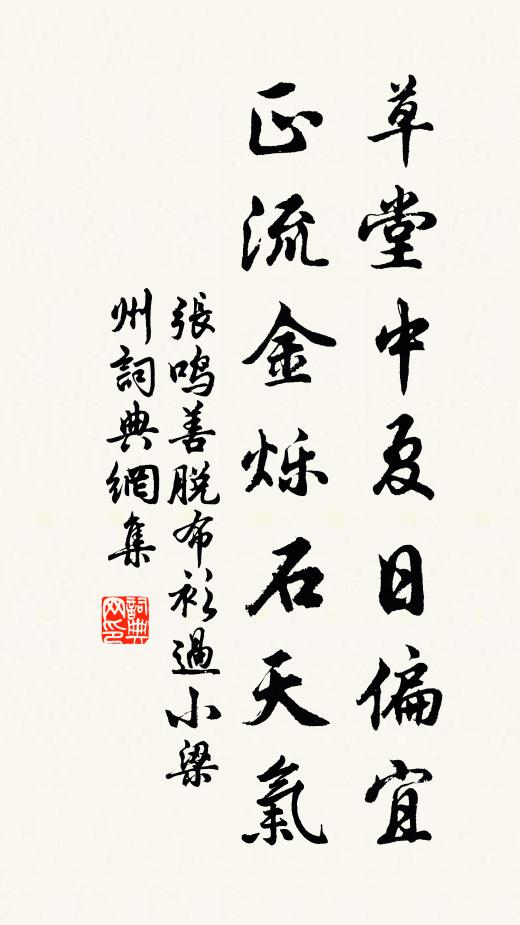 草堂中夏日偏宜
正流金烁石天氣
張鸣善脱布衫過小梁
州詞典網集
詞典网印